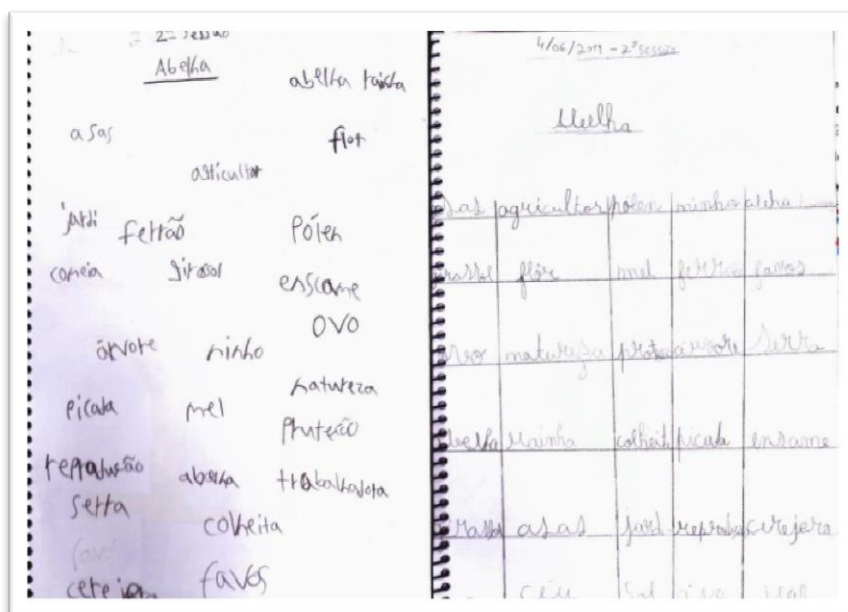 2ª sessão
Abelha
abelha rainha
asas
flor
agricultor
jardi
ferrão
Pólen
comeia
girasol
enscame
ovo
árvore
ninho
natureza
picada
mel
Pruteção
reprodusão
abelha
trabalhadora
serra
colheita
favos
cerejera
favos
4/06/2011 - 2ª sessão
Abelha
asas agricultor pólen ninho
flôr mel ferrão favos
natureza árvore serra
abelha rainha colheit picada enxame
asas jard cerejera
céu Sol